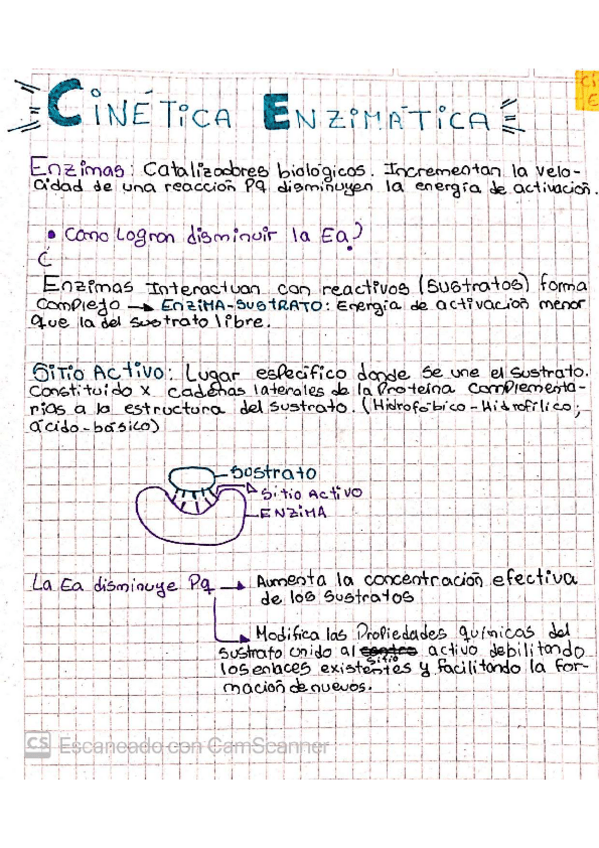 CINÉTICA ENZIMÁTICA
Ci
E
Enzimas: Catalizadores biológicos. Incrementan la velo-
cidad de una reacción Pq disminuyen la energía de activación.
• ¿Como Logran disminuir la Ea?
Enzimas Interactuan con reactivos (Sustratos) forma
Complejo → ENZIMA-SUSTRATO: Energía de activación menor
que la del sustrato libre.
SITIO ACTIVO: Lugar específico donde se une el sustrato.
Constituido x cadenas laterales de la Proteína complementa-
rias a la estructura del sustrato. (Hidrofóbico-Hidrofílico;
ácido-básico)
Sustrato
Sitio Activo
ENZIMA
La Ea disminuye Pq → Aumenta la concentración efectiva
de los sustratos
Modifica las Propiedades químicas del
sustrato unido al centro sitio activo debilitando
los enlaces existentes y facilitando la for-
mación de nuevos.
CS Escaneado con CamScanner